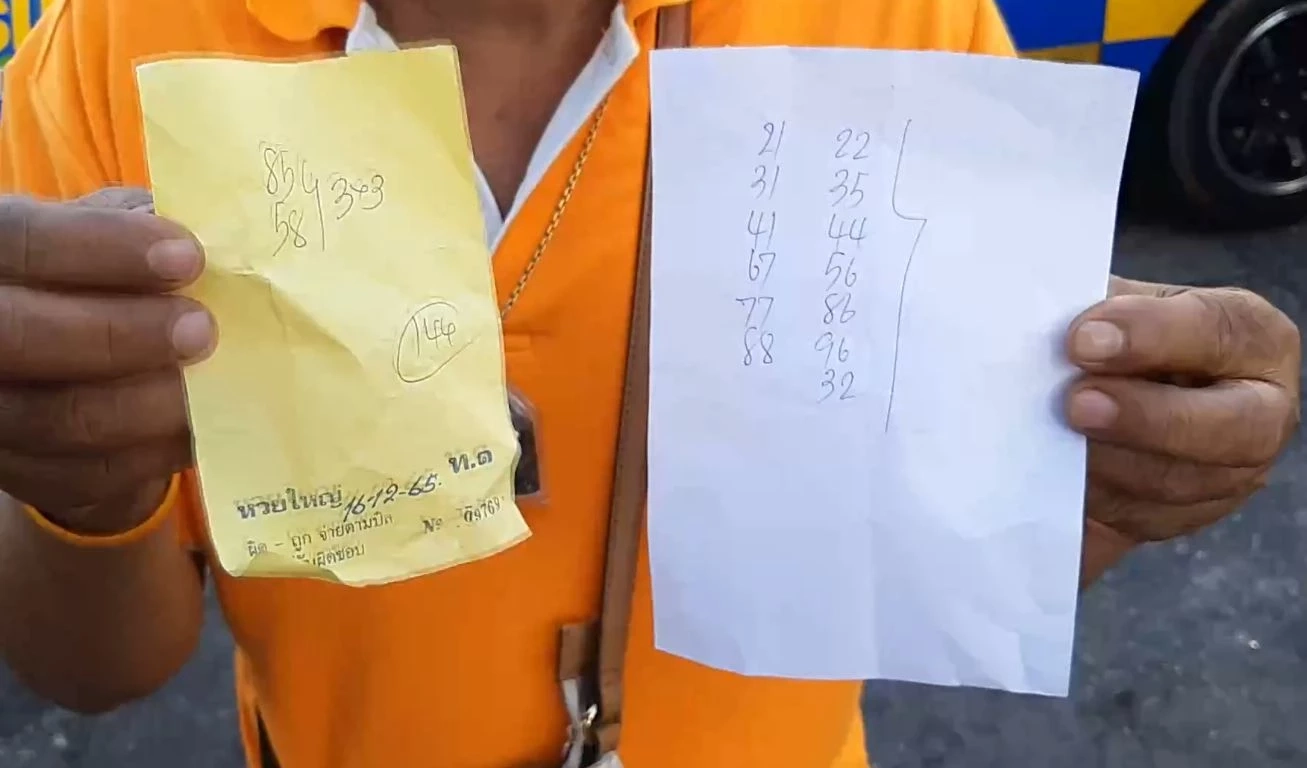 854
58
3×3
144
หวยใหญ่ 16-12-65. ท.ด
ผิด - ถูก จ่ายตามบิล
รับผิดชอบ
21 22
31 35
41 44
67 56
77 86
88 96
32